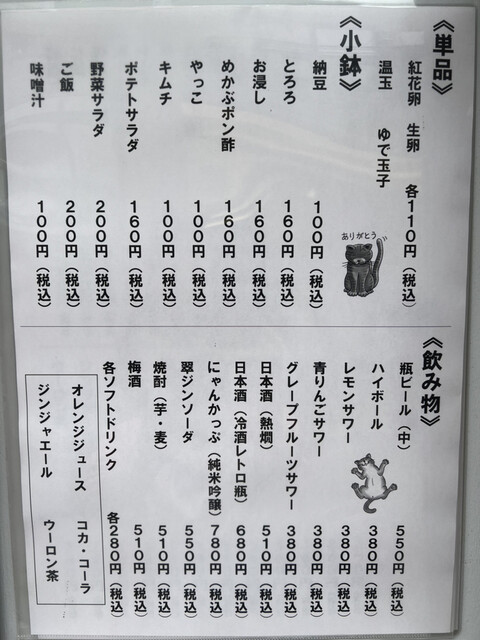 《単品》
紅花卵 生卵 各110円(税込)
温玉 ゆで玉子
ありがとう
《小鉢》
納豆 100円(税込)
とろろ 160円(税込)
お浸し 160円(税込)
めかぶポン酢 160円(税込)
やっこ 100円(税込)
キムチ 100円(税込)
ポテトサラダ 160円(税込)
野菜サラダ 200円(税込)
ご飯 200円(税込)
味噌汁 100円(税込)
《飲み物》
瓶ビール(中) 550円(税込)
ハイボール 380円(税込)
レモンサワー 380円(税込)
青りんごサワー 380円(税込)
グレープフルーツサワー 380円(税込)
日本酒(熱燗) 510円(税込)
日本酒(冷酒レトロ瓶) 680円(税込)
にゃんかっぷ(純米吟醸) 780円(税込)
翠ジンソーダ 550円(税込)
焼酎(芋・麦) 510円(税込)
梅酒 510円(税込)
各ソフトドリンク 各280円(税込)
オレンジジュース コカ・コーラ
ジンジャエール ウーロン茶